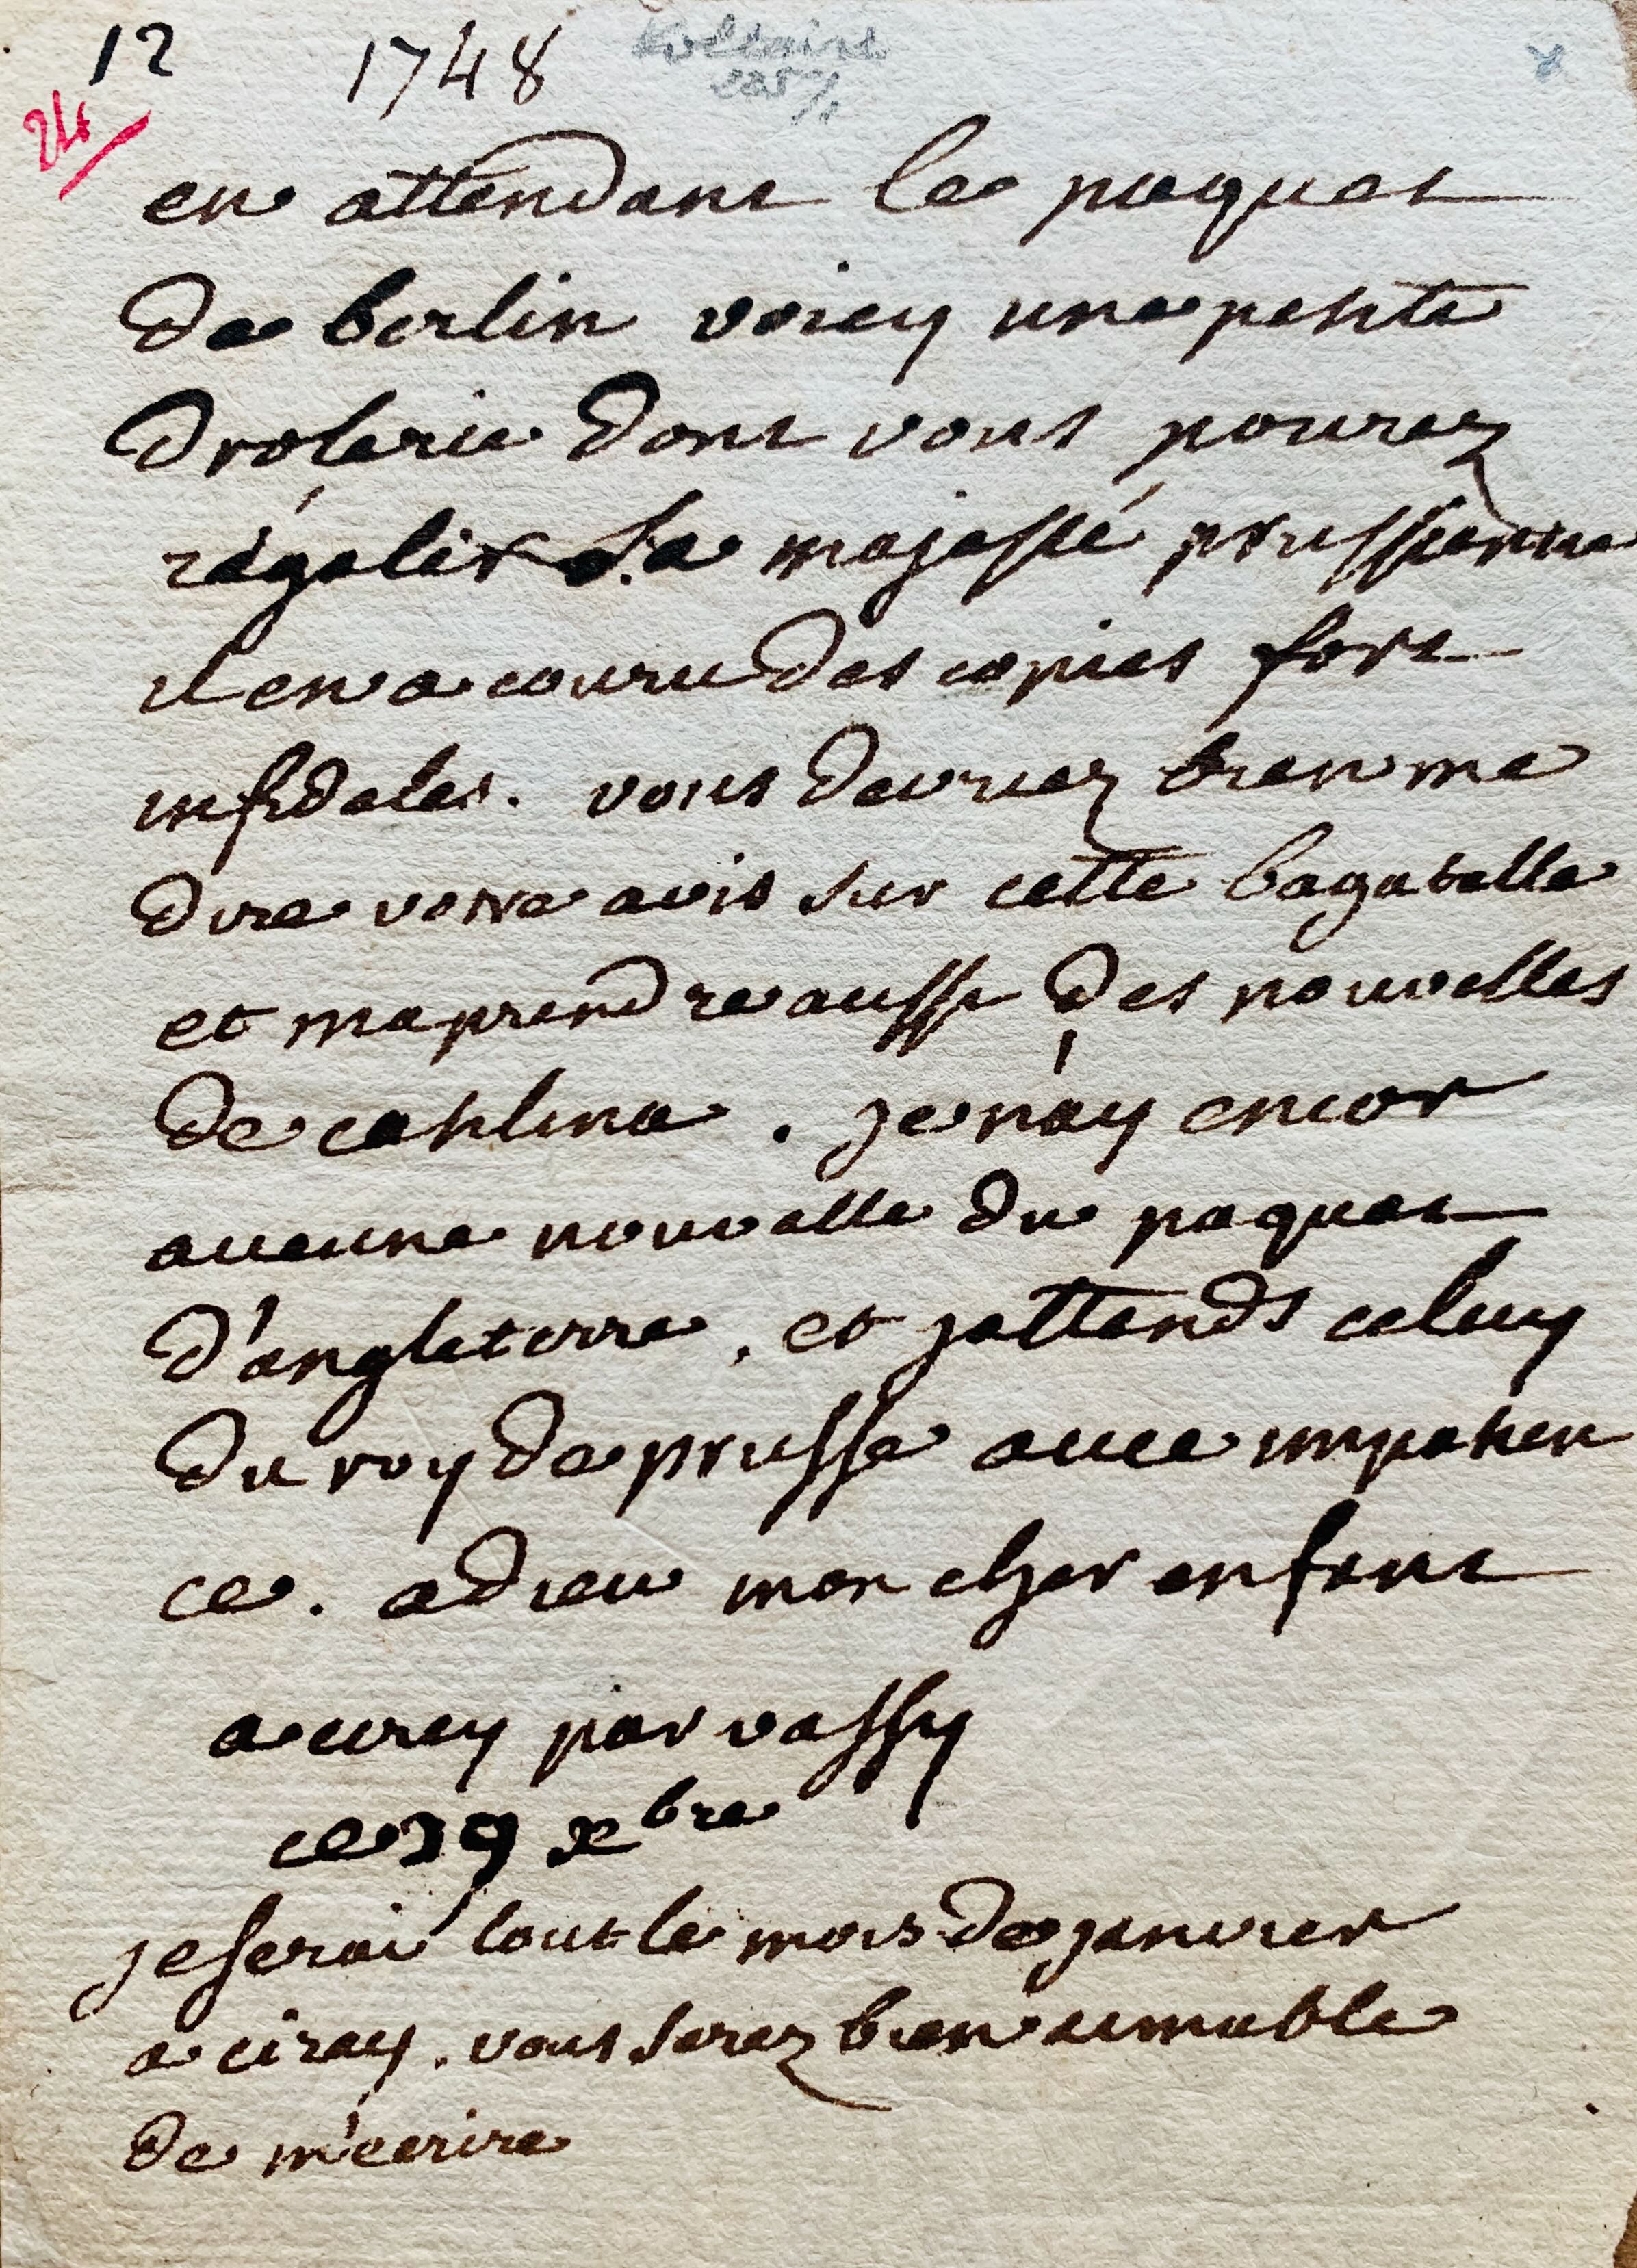 12 1748 Voltaire
24
en attendant le paquet
de berlin voicy une petite
drolerie dont vous pourez
régaler Sa majesté prussienne
il en a couru des copies fort
infideles. vous devriez bien me
dire votre avis sur cette bagatelle
et maprendre aussi des nouvelles
de catilina. je n'ay encor
aucune nouvelle du paquet
d'angleterre, et jattends celuy
du roy de prusse avec impatien
ce. adieu mon cher enfant
a cirey par vassy
ce 29 xbre
je serai tout le mois de janvier
a cirey. vous serez bien aimable
de m'ecrire